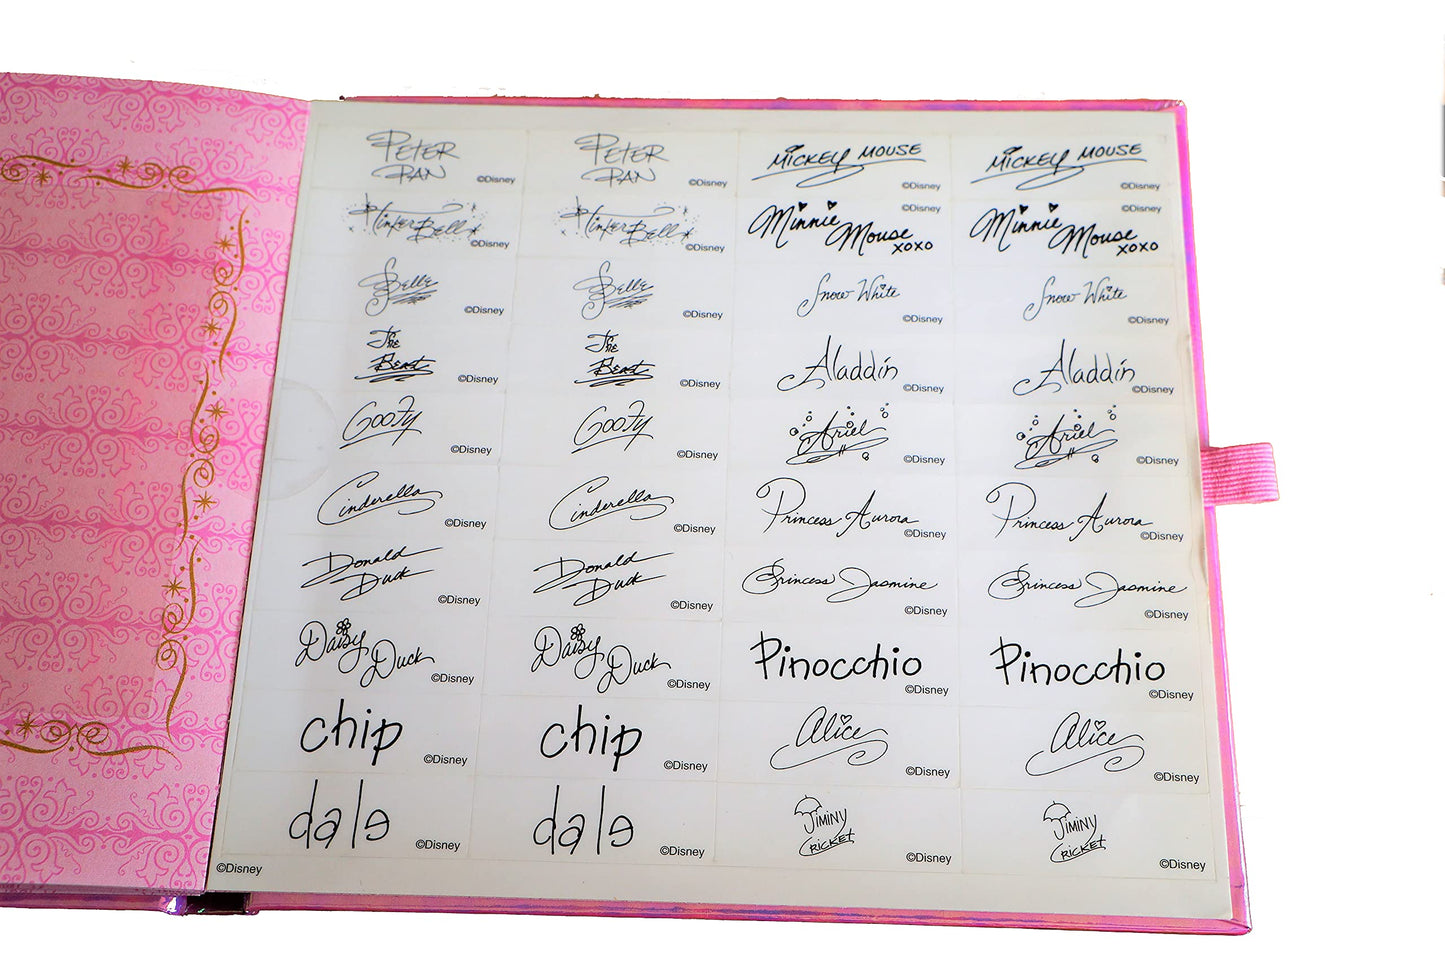 PETER
PAN
©Disney
PETER
PAN
©Disney
MICKEY MOUSE
©Disney
MICKEY MOUSE
©Disney
TinkerBell
©Disney
TinkerBell
©Disney
©Disney
Minnie
Mouse
xoxo
©Disney
Minnie
Mouse
xoxo
Belle
©Disney
Belle
©Disney
Snow White
©Disney
Snow White
©Disney
The
Beast
©Disney
The
Beast
©Disney
Aladdin
©Disney
Aladdin
©Disney
GOOFY
©Disney
GOOFY
©Disney
Ariel
©Disney
Ariel
©Disney
Cinderella
©Disney
Cinderella
©Disney
Princess Aurora
©Disney
Princess Aurora
©Disney
Donald
Duck
©Disney
Donald
Duck
©Disney
Princess Jasmine
©Disney
Princess Jasmine
©Disney
Daisy
Duck
©Disney
Daisy
Duck
©Disney
Pinocchio
©Disney
Pinocchio
©Disney
chip
©Disney
chip
©Disney
Alice
©Disney
Alice
©Disney
dale
©Disney
dale
©Disney
JIMINY
CRICKET
©Disney
JIMINY
CRICKET
©Disney
©Disney